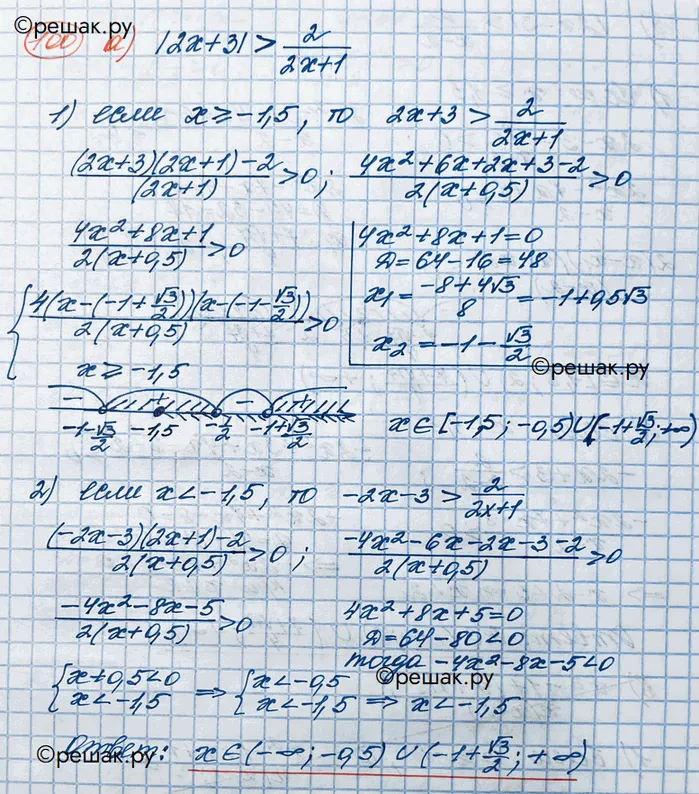 ©решак.ру
100 а) |2x+3| > 2/(2x+1)
1) если x ≥ -1,5, то 2x+3 > 2/(2x+1)
((2x+3)(2x+1)-2)/(2x+1) > 0; (4x²+6x+2x+3-2)/(2(x+0,5)) > 0
(4x²+8x+1)/(2(x+0,5)) > 0
4x²+8x+1=0
Д=64-16=48
x₁ = (-8+4√3)/8 = -1+0,5√3
x₂ = -1-√3/2
{ 4(x-(-1+√3/2))(x-(-1-√3/2))/(2(x+0,5)) > 0
x ≥ -1,5
©решак.ру
- + - +
-1-√3/2 -1,5 -1/2 -1+√3/2
x ∈ [-1,5; -0,5) ∪ (-1+√3/2; +∞)
2) если x < -1,5, то -2x-3 > 2/(2x+1)
((-2x-3)(2x+1)-2)/(2(x+0,5)) > 0; (-4x²-6x-2x-3-2)/(2(x+0,5)) > 0
(-4x²-8x-5)/(2(x+0,5)) > 0
4x²+8x+5=0
Д=64-80<0
тогда -4x²-8x-5<0
©решак.ру
{ x+0,5<0 x<-1,5 ⇒ { x<-0,5 x<-1,5 ⇒ x<-1,5
Ответ: x ∈ (-∞; -0,5) ∪ (-1+√3/2; +∞)
©решак.ру